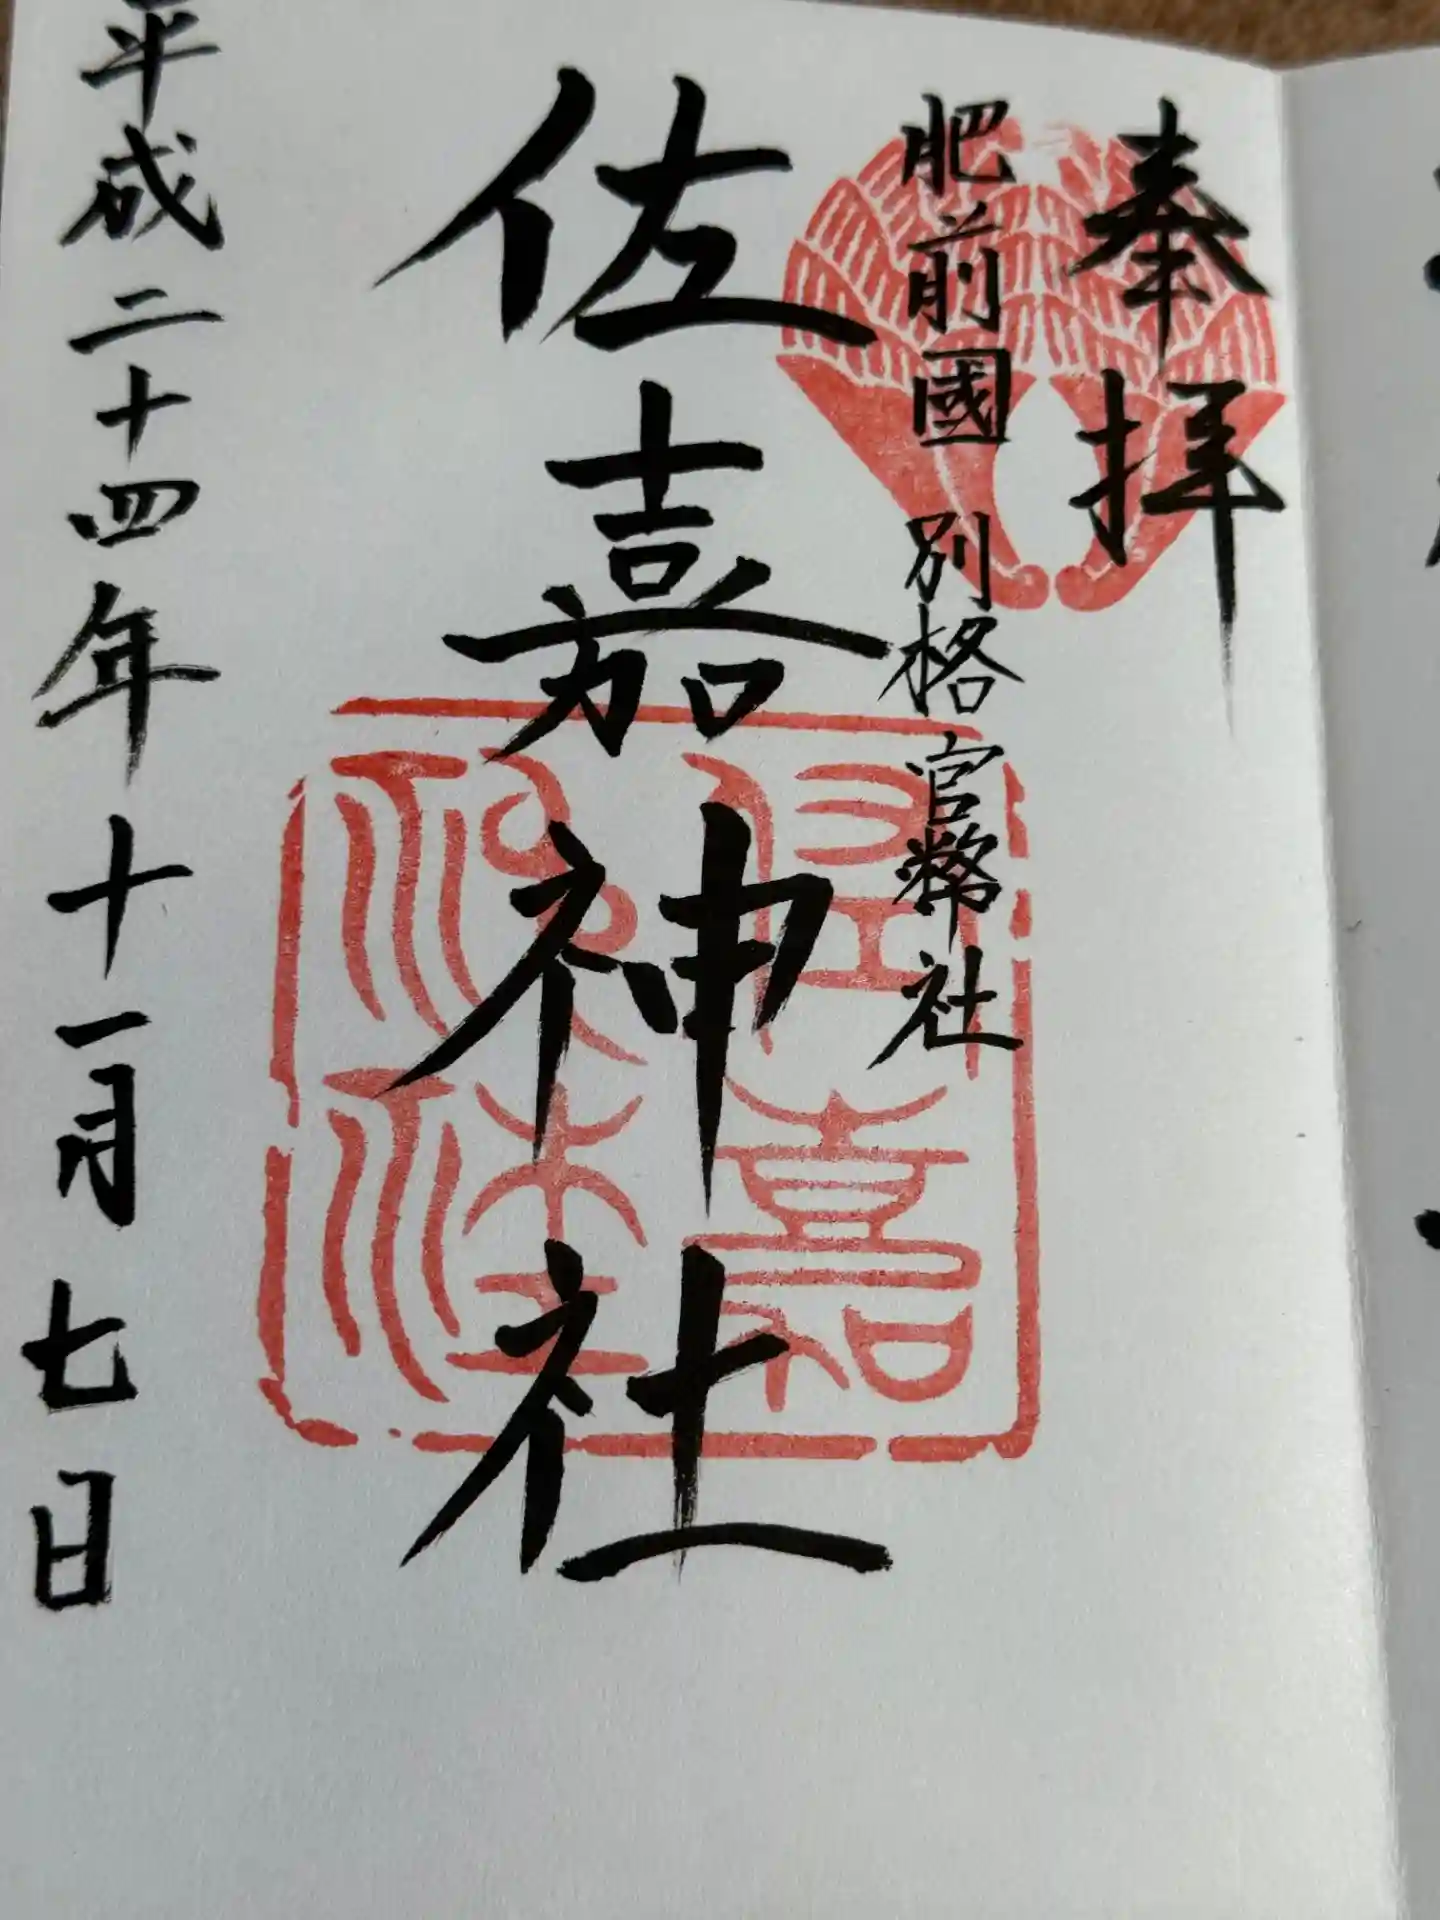 奉拝
肥前國 別格官幣社
佐嘉神社
佐嘉神社
平成二十四年十一月七日